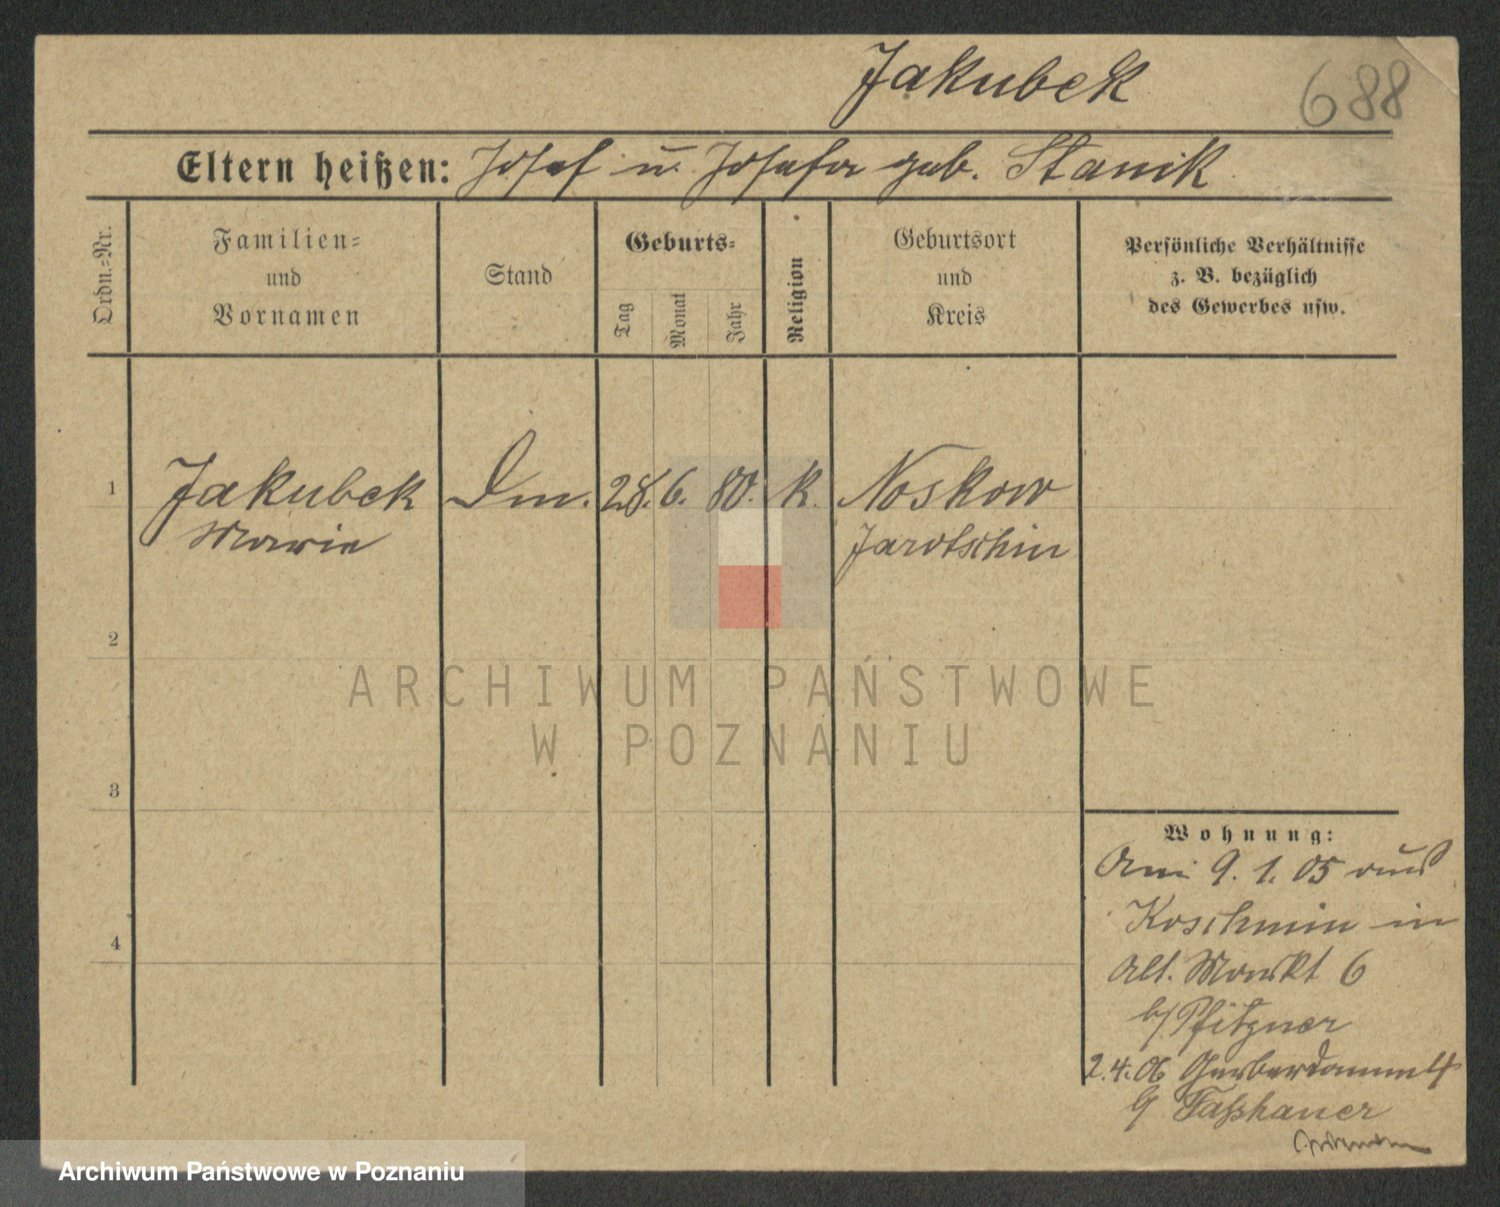 Jakubek
688
Eltern heißen: Josef u. Josefa geb. Stanik
Ordn.-Nr.
Familien-
und
Vornamen
Stand
Geburts-
Tag
Monat
Jahr
Religion
Geburtsort
und
Kreis
Persönliche Verhältnisse
z. B. bezüglich
des Gewerbes usw.
1
Jakubek
Marie
Dm.
28. 6. 80.
k.
Noskow
Jarotschin
2
3
4
ARCHIWUM PAŃSTWOWE
W POZNANIU
Wohnung:
Am 9. 1. 05 aus
Koschmin in
Alt. Markt 6
b/Pfitzner
2.4.06 Gerberdamm
Faßhauer
Archiwum Państwowe w Poznaniu